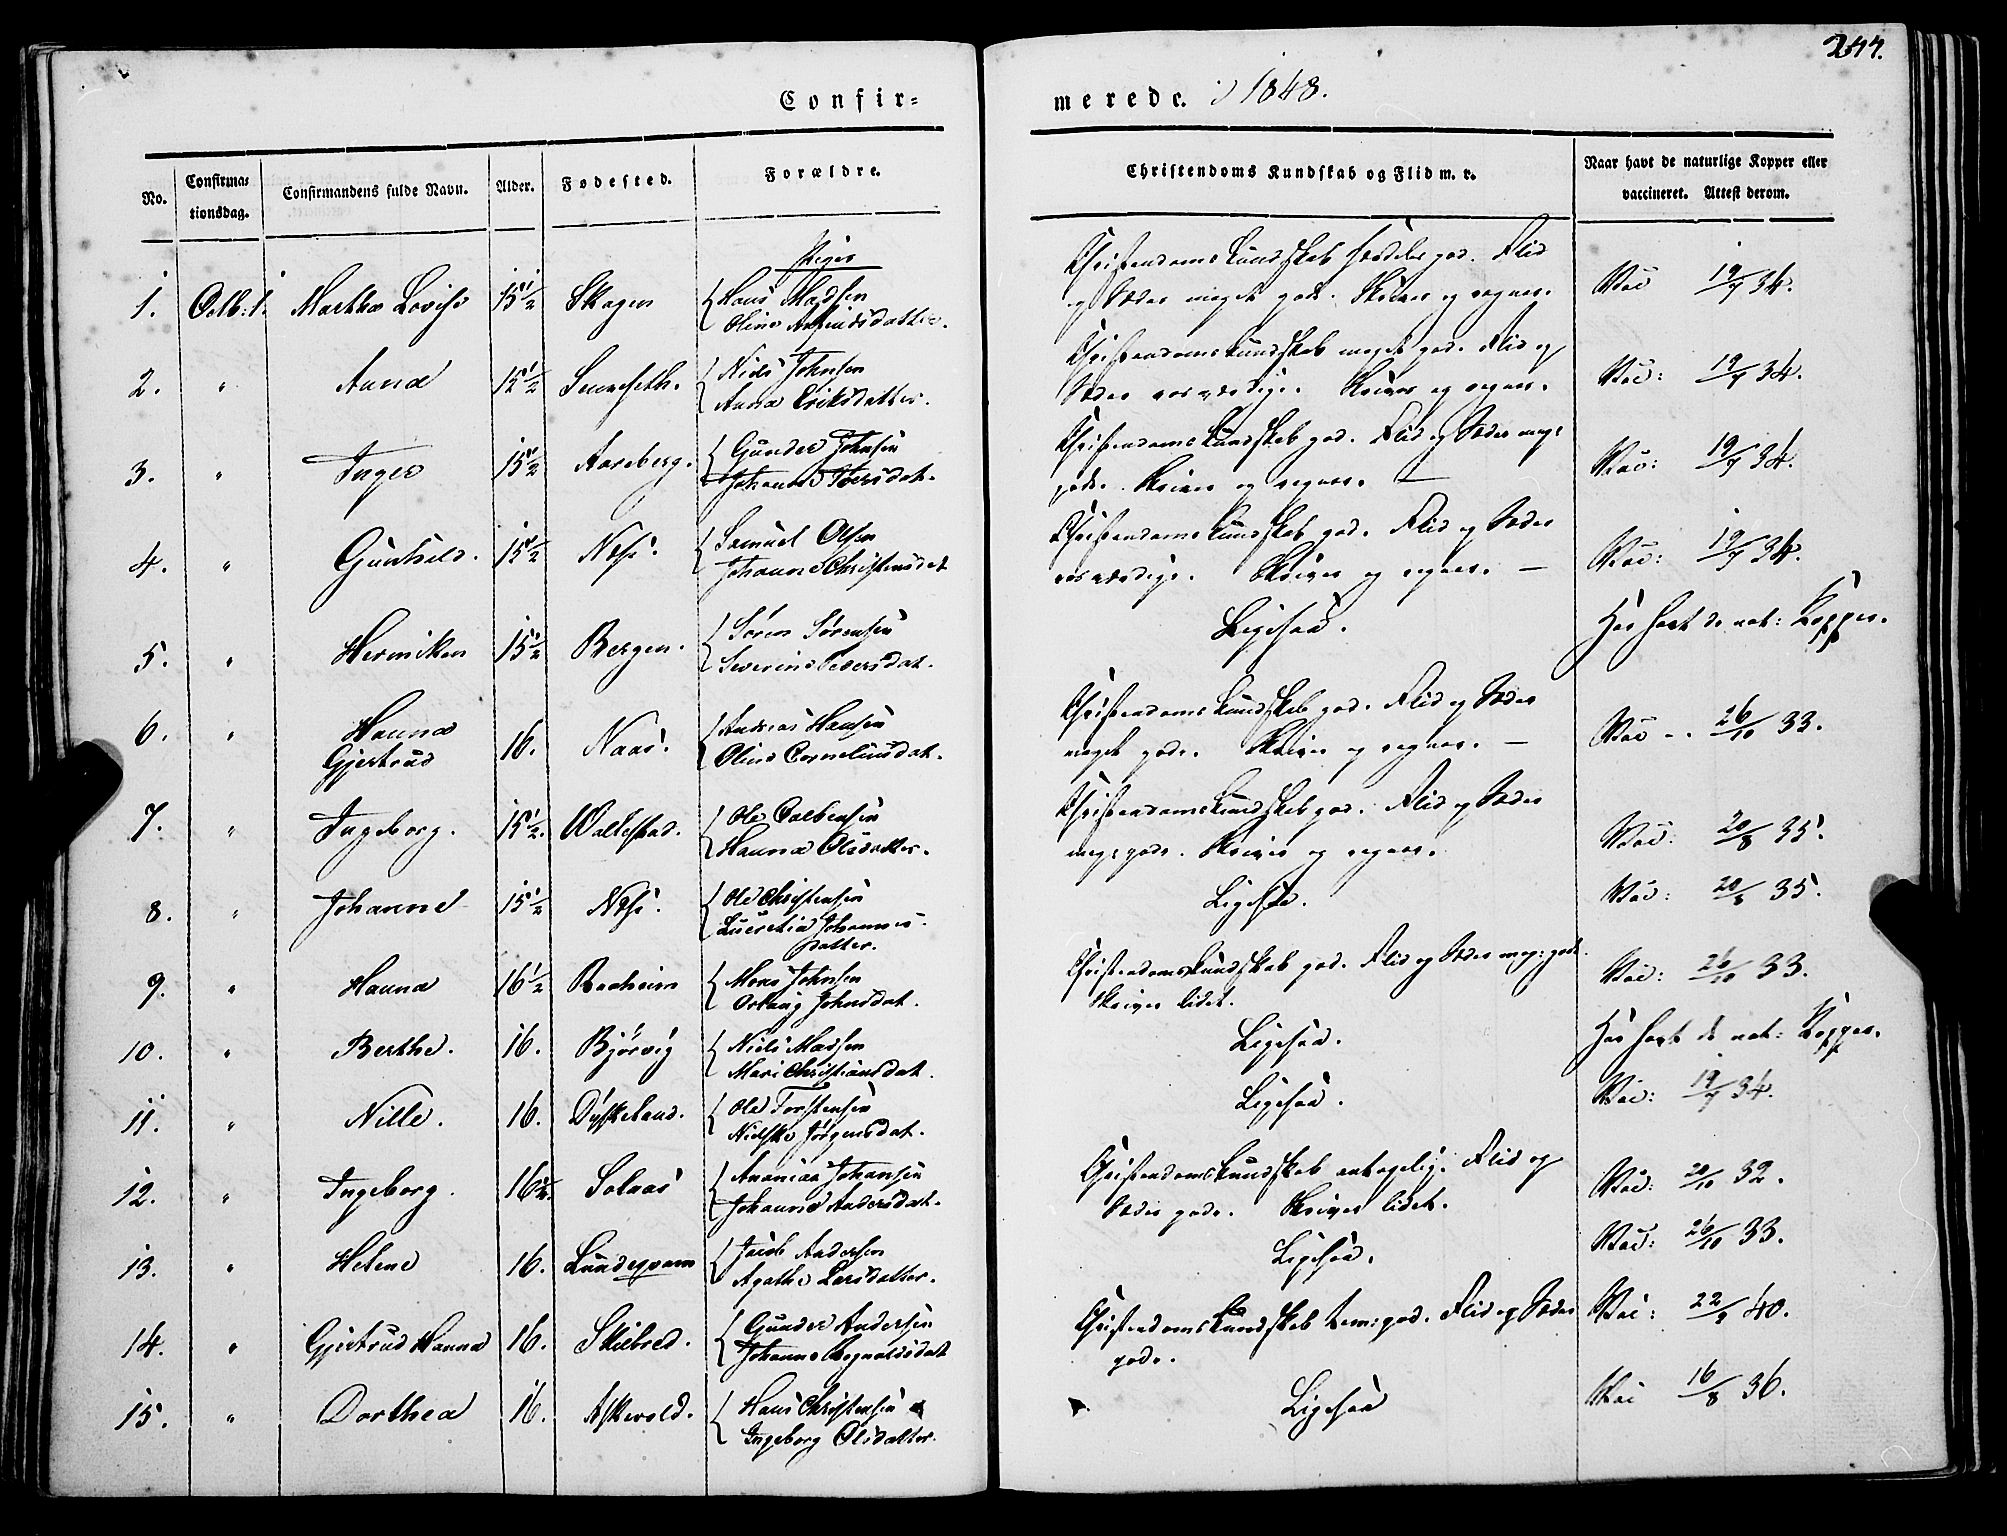 244.
Confir= merede. i 1848.
No. Confirma-tionsdag. Confirmandens fulde Navn. Alder. Fødested. Forældre. Christendoms Kundskab og Flid m. v. Naar havt de naturlige Kopper eller vaccineret. Attest derom.
Piger
1. Octb: 1. Martha Lovise 15 1/2 Skagen Hans Madsen Christendoms Kundskab særdeles god. Flid Vac 19/7 34.
Oline Arfindsdatter. og Sæder meget gode. Skriver og regner.
2. " Anna 15 1/2 Niels Johnsen Christendoms Kundskab meget god. Flid og Vac: 19/7 34.
Anna Eriksdatter. Sæder rosværdige. Skriver og regner.
3. " Inger 15 1/2 Aareberg. Gunder Johnsen Christendoms Kundskab god. Flid og Sæder meg: Vac: 19/7 34.
Johanne Iversdat. gode. Skriver og regner. —
4. " Gunhild. 15 1/2 Næss. Samuel Olsen Christendoms Kundskab god. Flid og Sæder Vac: 19/7 34.
Johanne Christensdat rosværdige. Skriver og regner. —
5. " Hermiken 15 1/2 Bergen. Sören Sörensen Ligesaa. Har havt de nat: Kopper.
Severine Pedersdat.
6. " Hanna Andreas Hansen Christendoms Kundskab god. Flid og Sæder Vac 26/10 33.
Gjertrud 16. Naas. Oline Corneliusdat. meget gode. Skriver og regner. —
7. " Ingeborg. 15 1/2. Valkestad. Ole Colbensen Christendoms Kundskab god. Flid og Sæder Vac: 20/8 35.
Hanna Olsdatter. meg: gode. Skriver og regner.
8. " Johanne 15 1/2 Næss. Ole Christensen Ligesaa. Vac: 20/8 35.
Lucretia Johannes-
datter.
9. " Hanna 16 1/2 Mons Johnsen Christendoms Kundskab god. Flid og Sæder meg: gode. Vac: 26/10 33.
Johnsdat. Skriver lidet.
10. " Berthe. 16. Björvig Niels Madsen Ligesaa. Har havt de nat: Kopper.
Mari Christiansdat.
11. " Nille. 16. Dyskeland. Ole Torstensen Ligesaa. Vac: 19/7 34.
Nielske Jörgensdat.
12. " Ingeborg. 16 1/2. Solaas Ananias Johansen Christendoms Kundskab antagelig. Flid og Vac: 20/10 32.
Johanne Andersdat. Sæder gode. Skriver lidet.
13. " Helene 16. Lundeqvam Jacob Andersen Ligesaa. Vac: 26/10 33.
Agathe Larsdatter.
14. " Gjertrud Hanna 16. Skilbred. Gunder Andersen Christendoms Kundskab tem: god. Flid og Sæder Vac: 22/9 40.
Johanne Regnaldsdat gode.
15. " Dorthea 16. Askevold. Hans Christensen Ligesaa Vac 16/8 36.
Ingeborg Olsdatter.